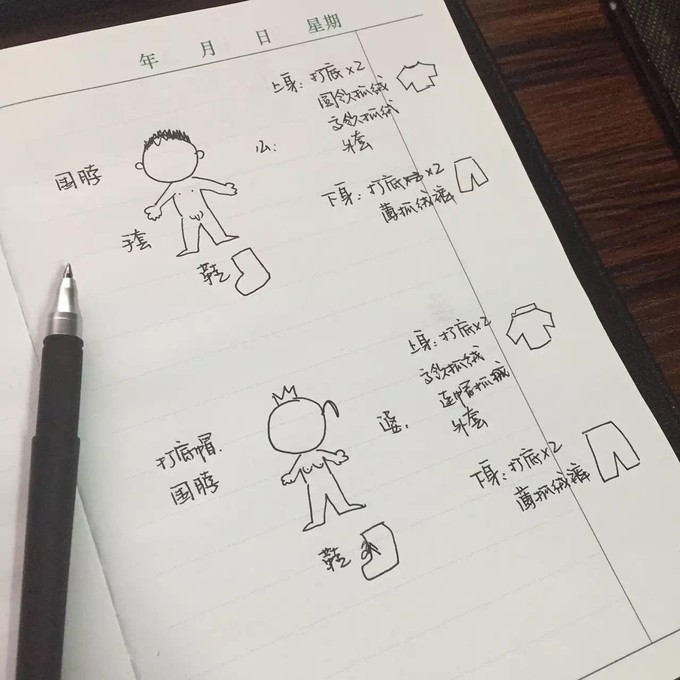 年 月 日 星期
上身：打底×2
圆领抓绒
高领抓绒
外套
围脖
公：
手套
下身：打底×2
薄抓绒裤
鞋
上身：打底×2
高领抓绒
连帽抓绒
外套
打底帽
围脖
婆：
下身：打底×2
薄抓绒裤
鞋